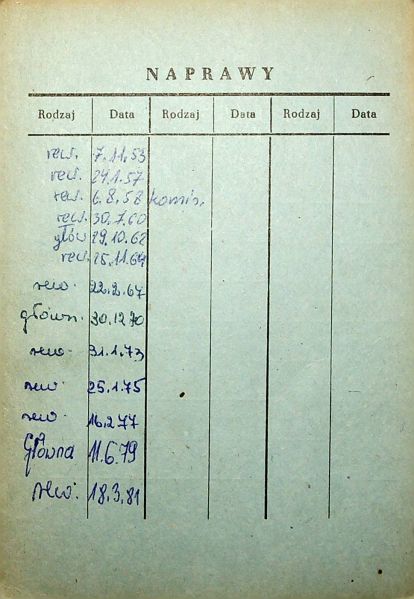 NAPRAWY
Rodzaj Data Rodzaj Data Rodzaj Data
rew. 7.11.53
rew. 24.1.57
rew. 6.8.58 komis.
rew. 30.7.60
głów 29.10.62
rew. 25.11.64
rew. 22.2.67
główn. 30.12.70
rew. 31.1.73
rew. 25.1.75
rew. 16.2.77
Główna 11.6.79
rew. 18.3.81